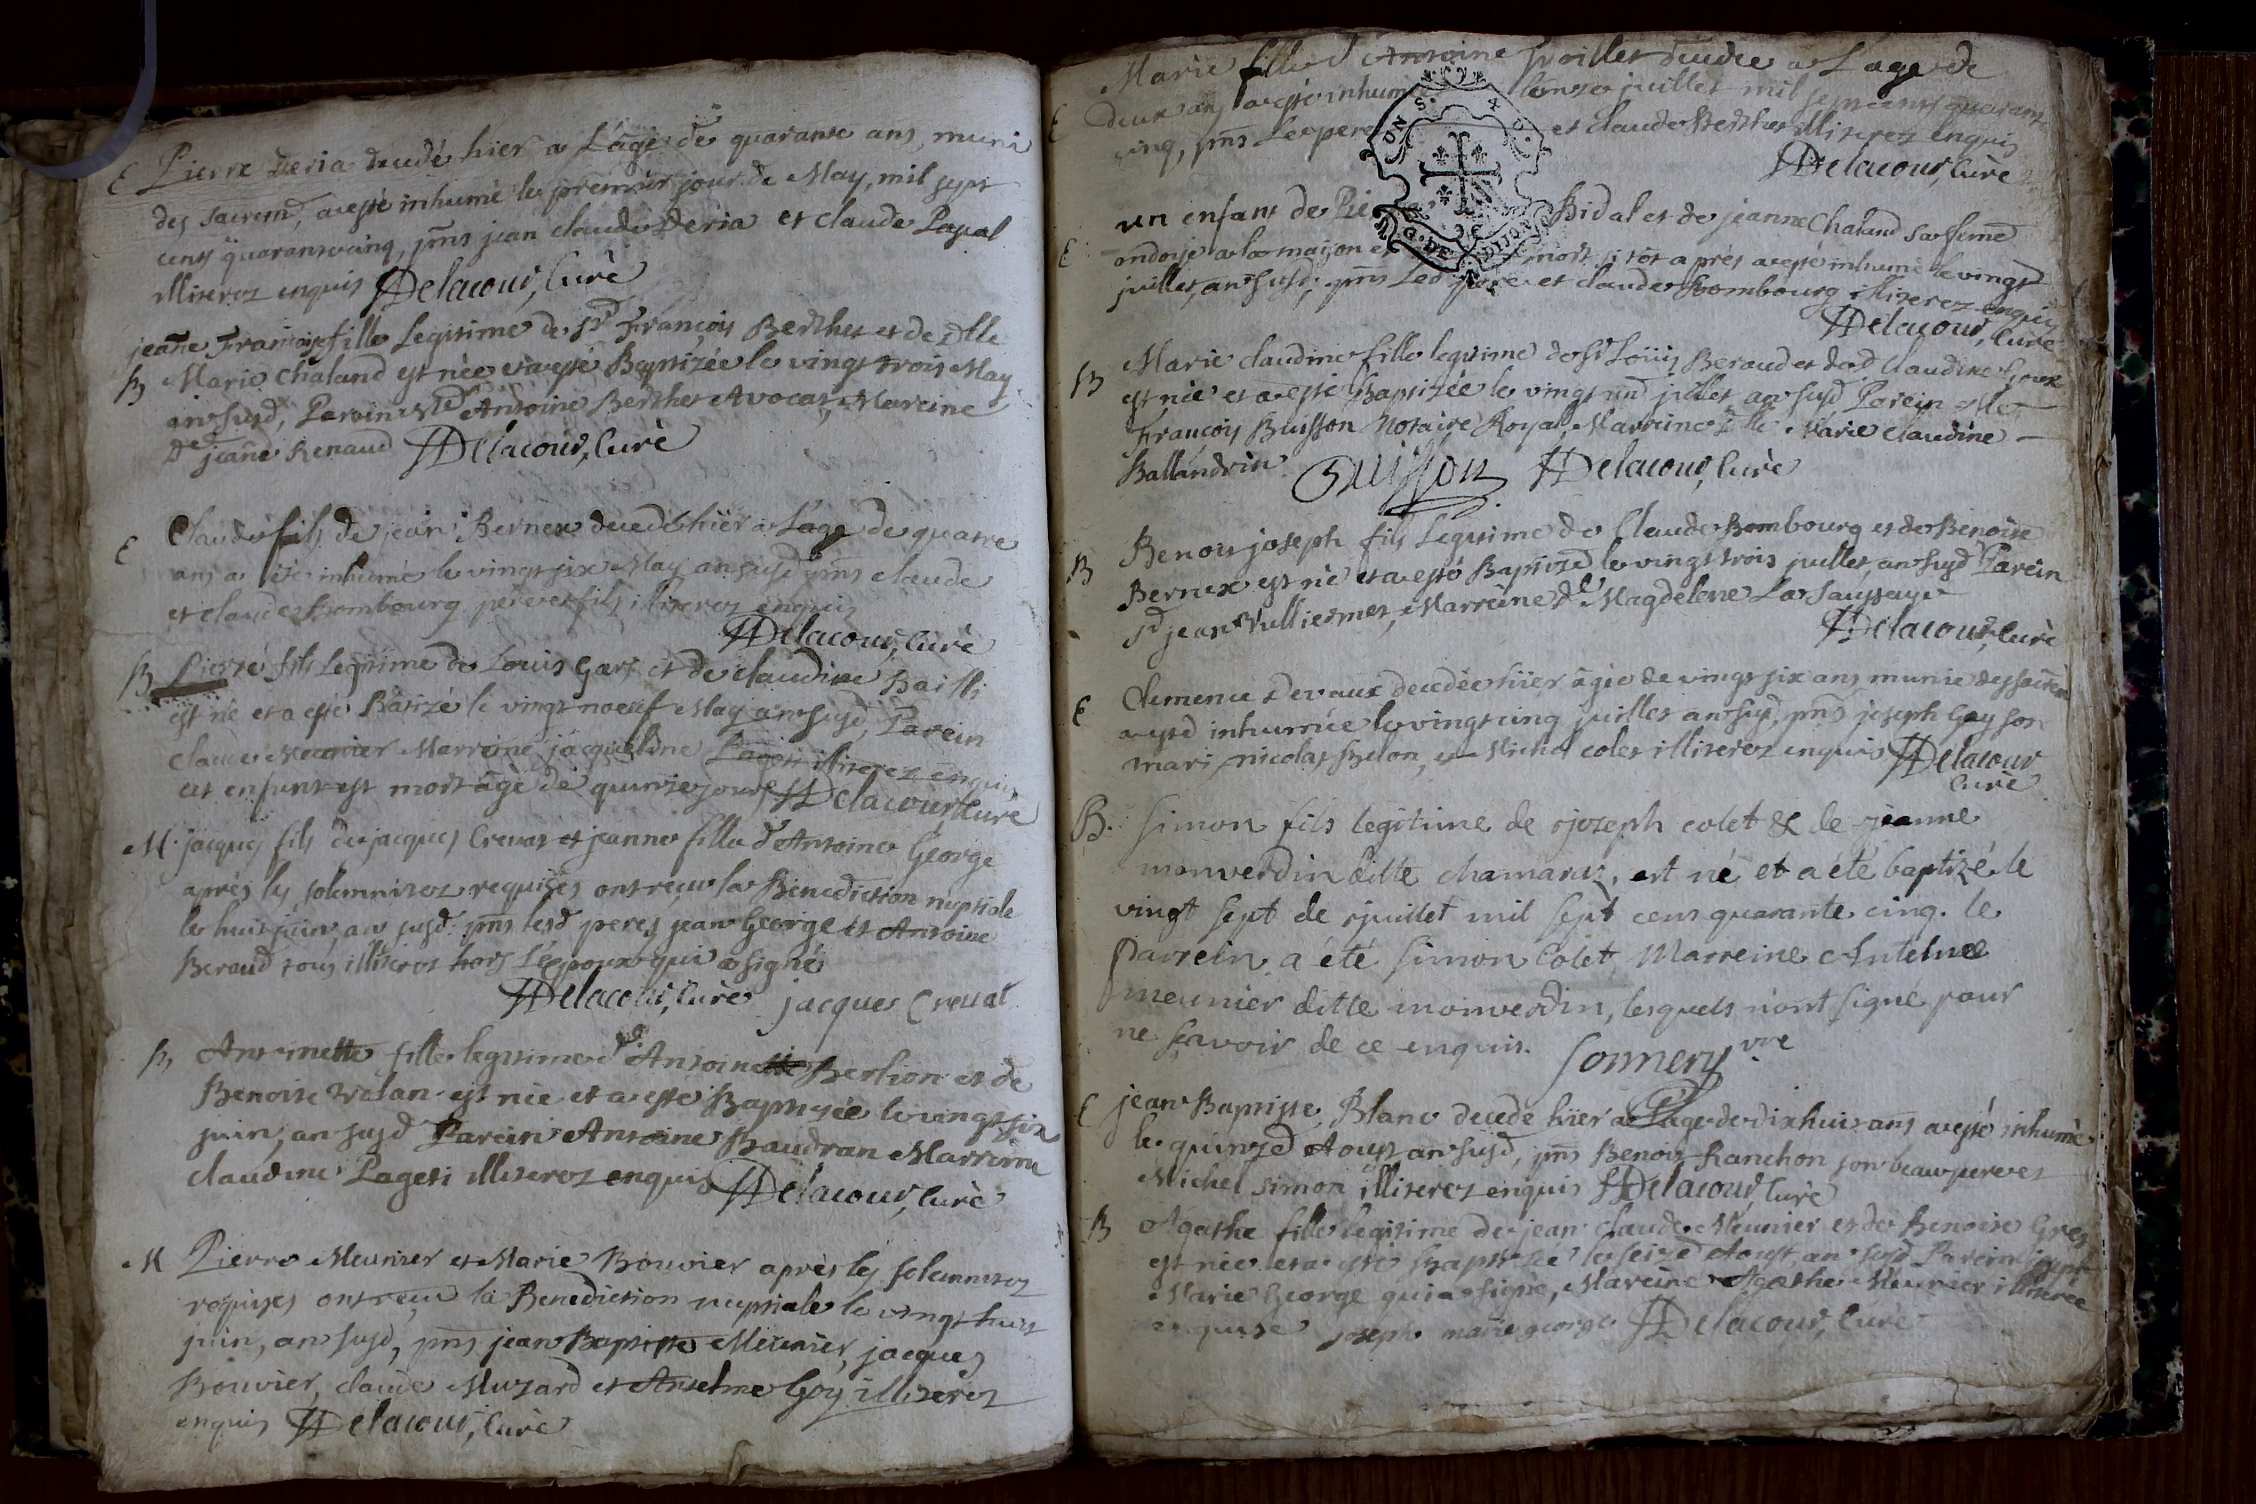 E Pierre Deria decedé hier a L'age de quarante ans, muni
des sacremts, a esté inhumé le premier jour de May, mil sept
cents quarante cinq, pnts jean claude Deria et Claude Pagal
illiterez enquis Delacour, Curè
jeañe Françoise fille Legitime de Sr François Berthet et de Dlle
B Marie Chaland est née et a esté Baptizée le vingt trois May
an susd, Parein Antoine Berthet Avocat, Mareine
De jeañe Renaud Delacour, Curè
E Claude fils de jean Bernex decedé hier a L'age de quatre
ans a été inhumé le vingt six May an susd pnts claude
et claude Bombourg pere et fils illiterez enquis
Delacour, Curè
B Pierre fils Legitime de Louis Gary et de claudine Bailli
est né et a esté Batizé le vingt noeuf May an susd, Parein
claude Meunier Marreine jacqueline Pageti illiterez enquis
cet enfant est mort âgé de quinze jours Delacour Curè
M. jacques fils de jacques Crevat et jeanne fille d'Antoine George
après les solemnitez requises ont reçu la Benediction nuptiale
le huit juin, an susd: pnts lesd peres jean George et Antoine
Beraud tous illiterez hors L'époux qui a signé
Delacour, Curè jacques Crevat
B Antoinette fille legitime d'Antoine Berlion et de
Benoite Volan est née et a esté Baptizée le vingt six
juin, an susd Parein Antoine Baudran Marreine
claudine Pageti illiterez enquis Delacour, Curè
M Pierre Meunier et Marie Bouvier après les solemnitez
requises ont reçu la Benediction nuptiale le vingt huit
juin, an susd, pnts jean Baptiste Meunier, jacques
Bouvier, claude Muzard et Anselme Goy illiterez
enquis Delacour, Curè
Marie fille d'Antoine decedée a L'age de
E deux ans a esté inhumée juillet mil sept cents quarante
cinq, pnts Le pere et claude Berthet illiterez enquis
Delacour, Curè
ONS. 4 D.
G. DE DIJON
un enfant de Bidal et de jeanne Chaland sa feme
E ondoyé a la maison et mort si tôt après a esté inhumé le vingt
juillet, an susd, pnts Led pere et claude Bombourg illiterez enquis
Delacour, Curè
B Marie claudine fille legitime de Sr Loüis Beraud et de Claudine
est née et a esté Baptizée le vingt un juillet, an susd Parein Me
François Buisson Notaire Royal, Marreine Dlle Marie Claudine
Ballandrin Buisson Delacour, Curè
B Benoit joseph fils Legitime de Claude Bombourg et de Benoite
Bernex est né et a esté Baptizé le vingt trois juillet, an susd Parein
Sr jean Vulliermet, Marreine De Magdelene La Saussaye
Delacour, Curè
E Clemence Devaux decedée hier âgée de vingt six ans munie des sacrem
a esté inhumée le vingt cinq juillet an susd, pnts joseph Goy son
mari, nicolas Belon, et Michel colet illiterez enquis Delacour
Curè
B. Simon fils legitime de joseph colet & de jeanne
monverdin ditte chamaraz, est né et a été baptizé le
vingt sept de juillet mil sept cens quarante cinq. le
Parrein a été Simon Colet, Marreine Antelme
meunier ditte monverdin, lesquels n'ont signé pour
ne sçavoir de ce enquis. Sonnery vre
E jean Baptiste Blanc decedé hier a L'age de dix huit ans a esté inhumé
le quinze Aoust an susd, pnts Benoit Ranchon son beau pere et
Michel Simon illiterez enquis Delacour, Curè
B Agathe fille legitime de jean claude Meunier et de Benoite Gres
est née et a esté Baptizée le seize Aoust, an susd Parein joseph
Marie George qui a signé, Mareine Agathe Meunier illiterée
enquise joseph marie george Delacour, Curè